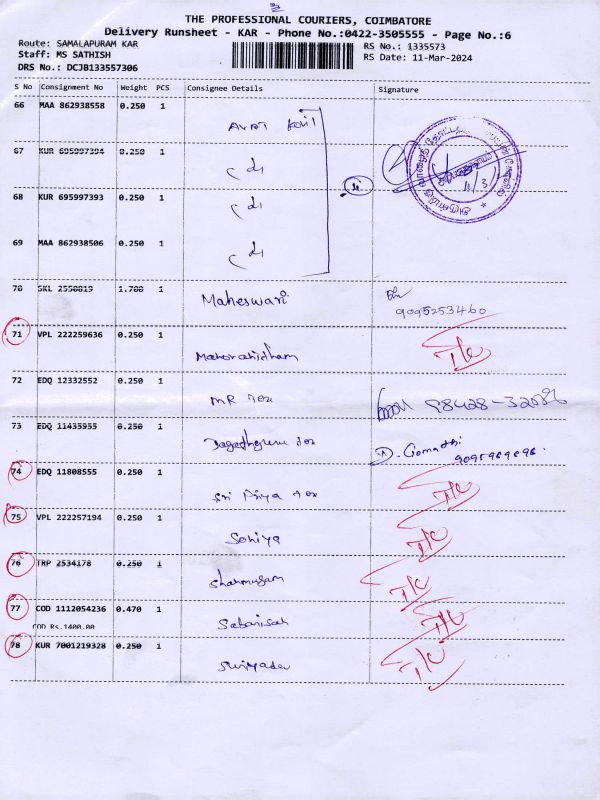 THE PROFESSIONAL COURIERS, COIMBATORE
Delivery Runsheet - KAR - Phone No.:0422-3505555 - Page No.:6
Route: SAMALAPURAM KAR
Staff: MS SATHISH
DRS No.: DCJB133557306
RS No.: 1335573
RS Date: 11-Mar-2024
S No Consignment No Weight PCS Consignee Details Signature
66 MAA 862938558 0.250 1
67 KUR 695997394 0.250 1
68 KUR 695997393 0.250 1
69 MAA 862938506 0.250 1
70 SKL 2550819 1.700 1 Maheswari
9095253460
71 VPL 222259636 0.250 1 T/C
72 EDQ 12332552 0.250 1 MR Tex
73 EDQ 11435955 0.250 1 Tex D. Gomathi
74 EDQ 11808555 0.250 1 Sri Priya Tex T/C
75 VPL 222257194 0.250 1 Soniya T/C
76 TRP 2534178 0.250 1 Shanmugam T/C
77 COD 1112054236 0.470 1 T/C
COD Rs.1400.00
78 KUR 7001219328 0.250 1 T/C